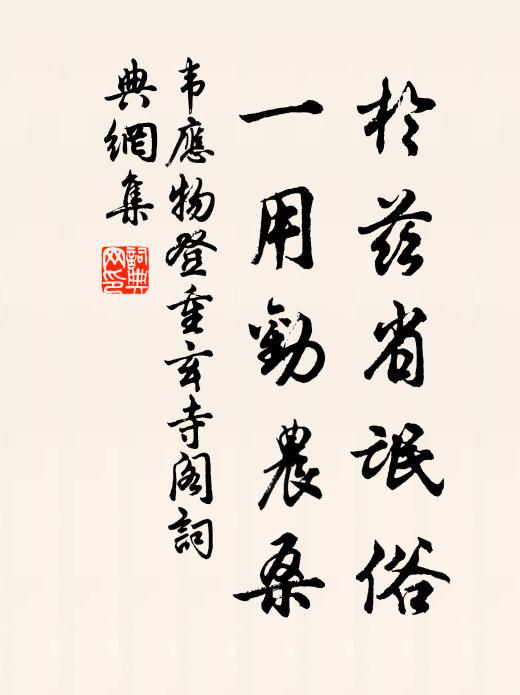 於茲省氓俗
一用勸農桑
韋應物登重玄寺閣詞
典網集
詞典
网印